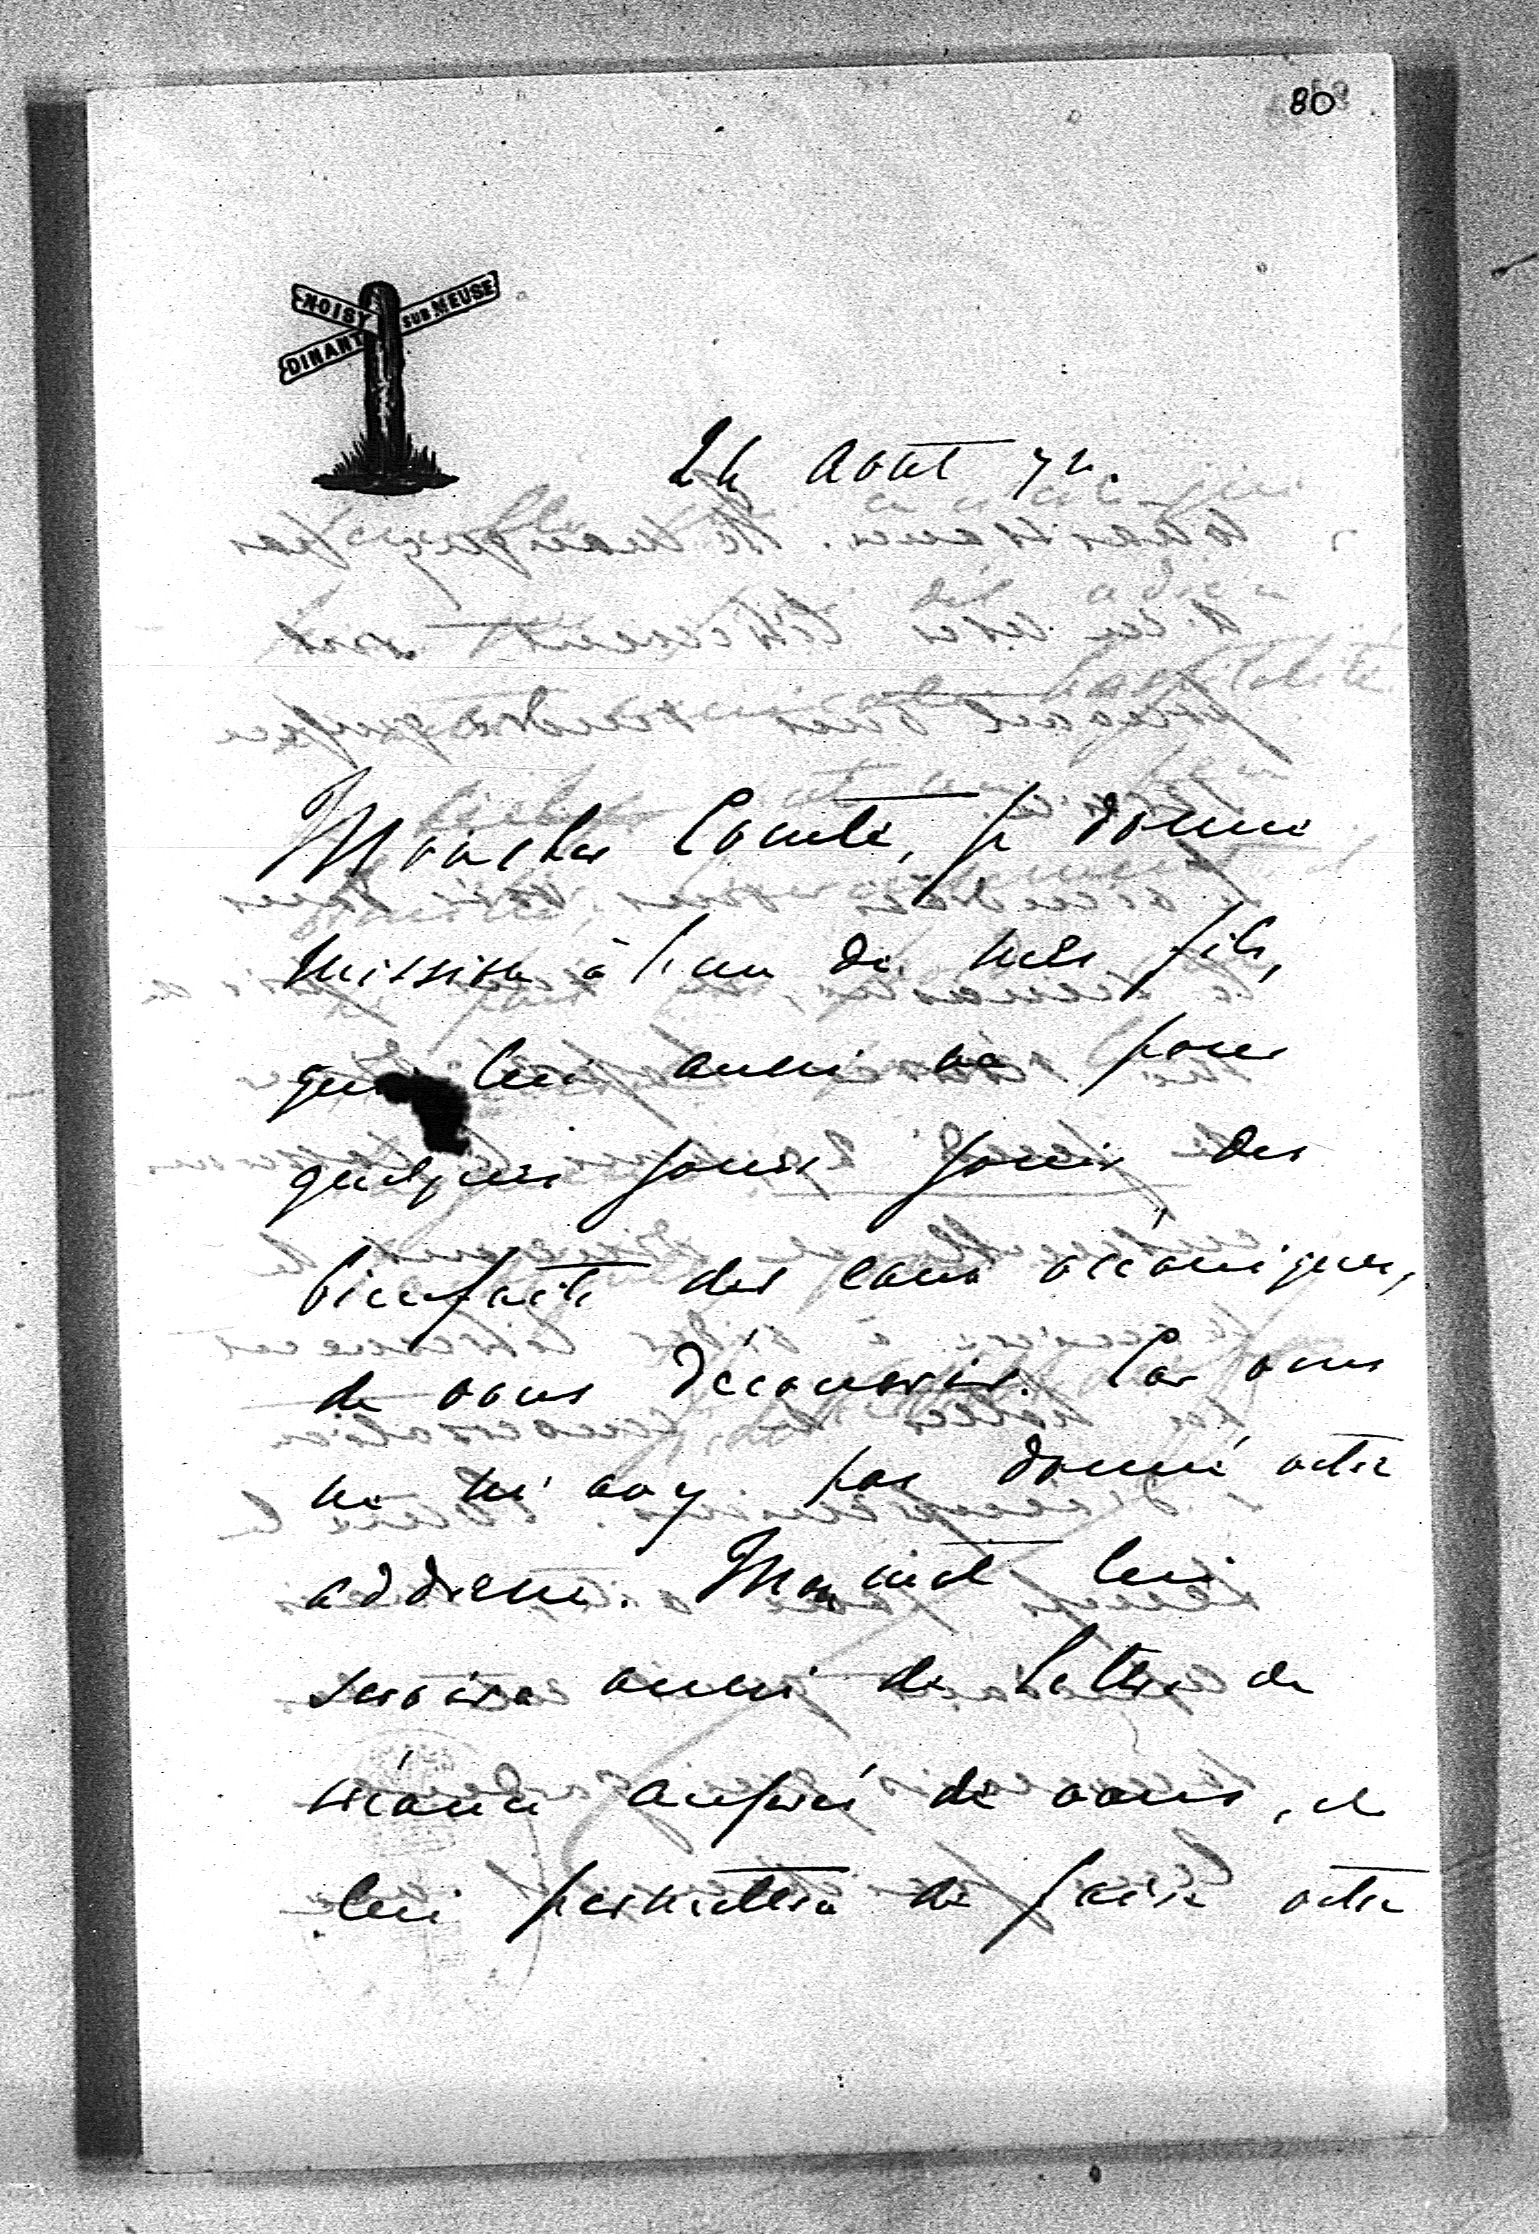 80
NOISY
SUR MEUSE
DINANT
24 Aout 72.
Mon cher Comte, je donne
mission à l'un de mes fils,
qui lui aussi va pour
quelques jours jouir des
bienfaits des eaux océaniques,
de vous découvrir. Car vous
ne m'avez pas donné votre
addresse. Ma carte lui
servira aussi de lettre de
créance auprès de vous, et
lui permettra de faire votre